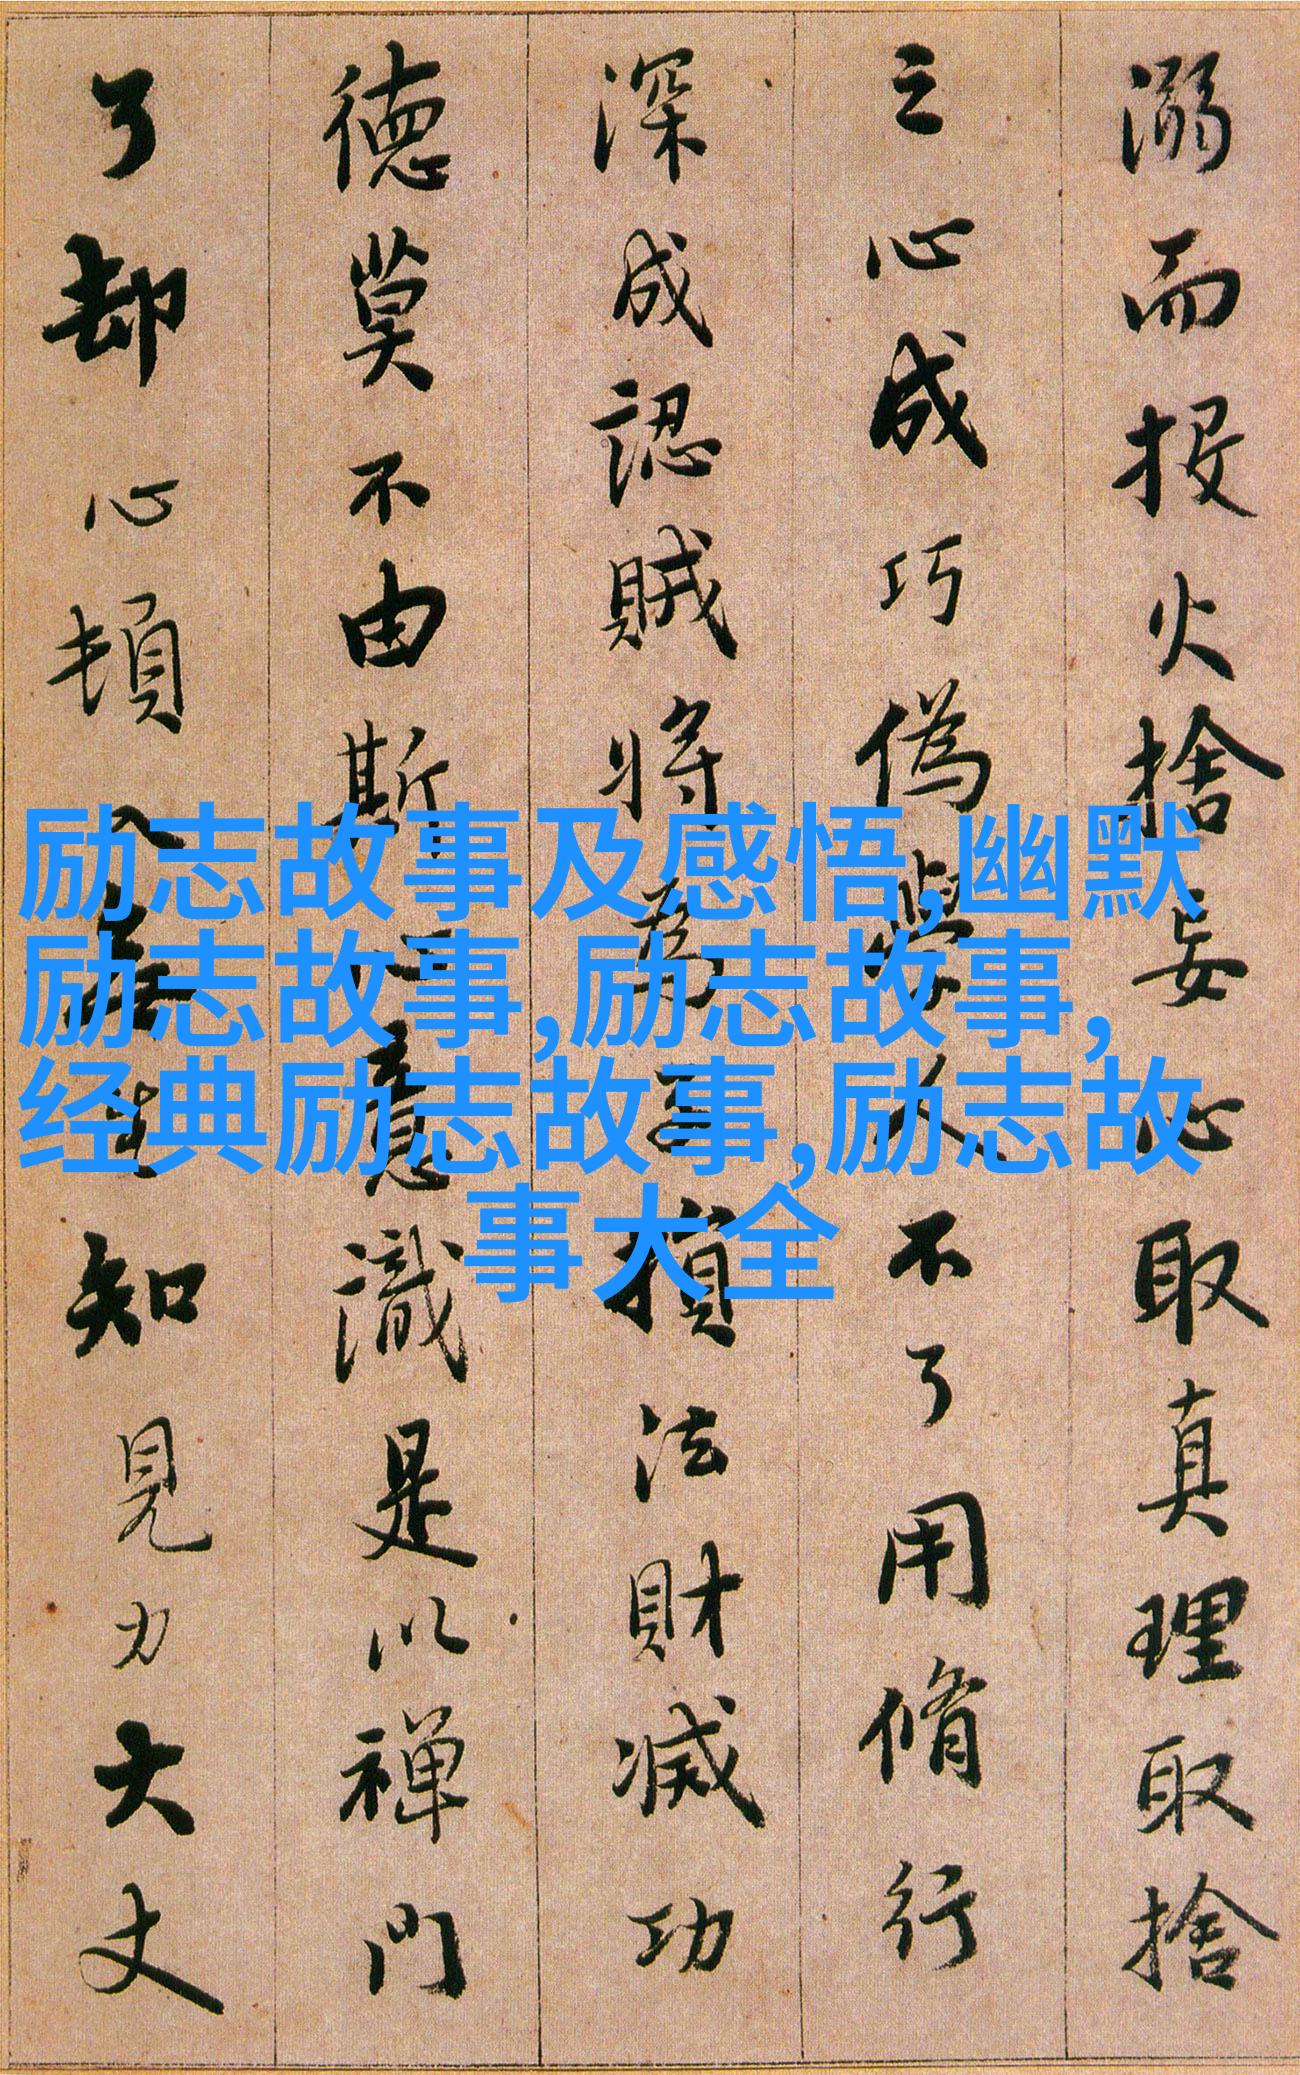 溺而投火捨妄心取真理取捨
之心成巧偽學人不了用脩行
深成認賊將為子損法財滅功
德莫不由斯心意識是以禪門
了却心頓入無生知見力大丈
励志故事及感悟,幽默
励志故事,励志故事,
经典励志故事,励志故
事大全